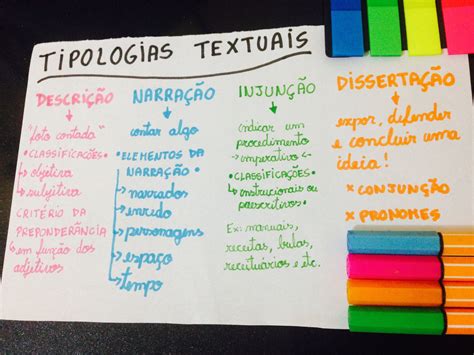 TIPOLOGIAS TEXTUAIS
DESCRIÇÃO
"foto contada"
• CLASSIFICAÇÕES
→ objetiva
→ subjetiva
CRITÉRIO DA
PREPONDERÂNCIA
→ em função dos
adjetivos
NARRAÇÃO
contar algo
• ELEMENTOS DA
NARRAÇÃO
→ narrados
→ enredo
→ personagens
→ espaço
→ tempo
INJUNÇÃO
indicar um
procedimento
→ imperativo ←
• CLASSIFICAÇÕES
→ instrucionais ou
prescritivos
Ex: manuais,
receitas, bulas,
receituários e etc.
DISSERTAÇÃO
expor, defender
e concluir uma
ideia!
× CONJUNÇÃO
× PRONOMES